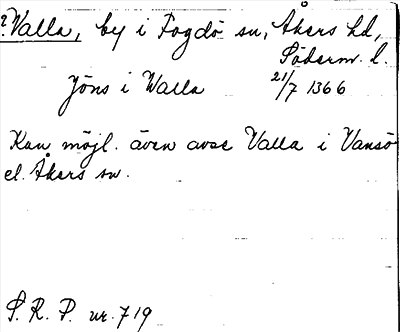 ?Valla, by i Fogdö sn, Åkers hd,
Söderm. l.
Jöns i Walla 21/7 1366
Kan möjl. även avse Valla i Vansö
el. Åkers sn.
S. R. P. nr. 719